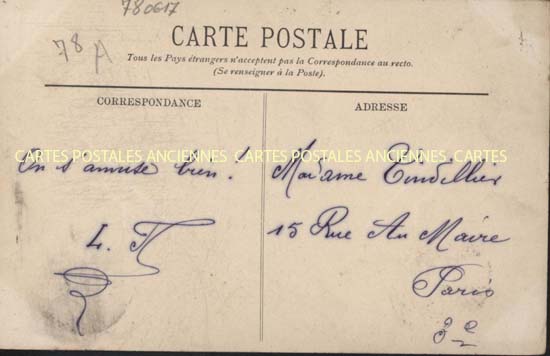 780617
78 A
CARTE POSTALE
Tous les Pays étrangers n'acceptent pas la Correspondance au recto.
(Se renseigner à la Poste).
CORRESPONDANCE
On s'amuse bien!
L.
ADRESSE
Madame
15 Rue Au Maire
Paris
3e
CARTES POSTALES ANCIENNES CARTES POSTALES ANCIENNES CARTES POSTALES